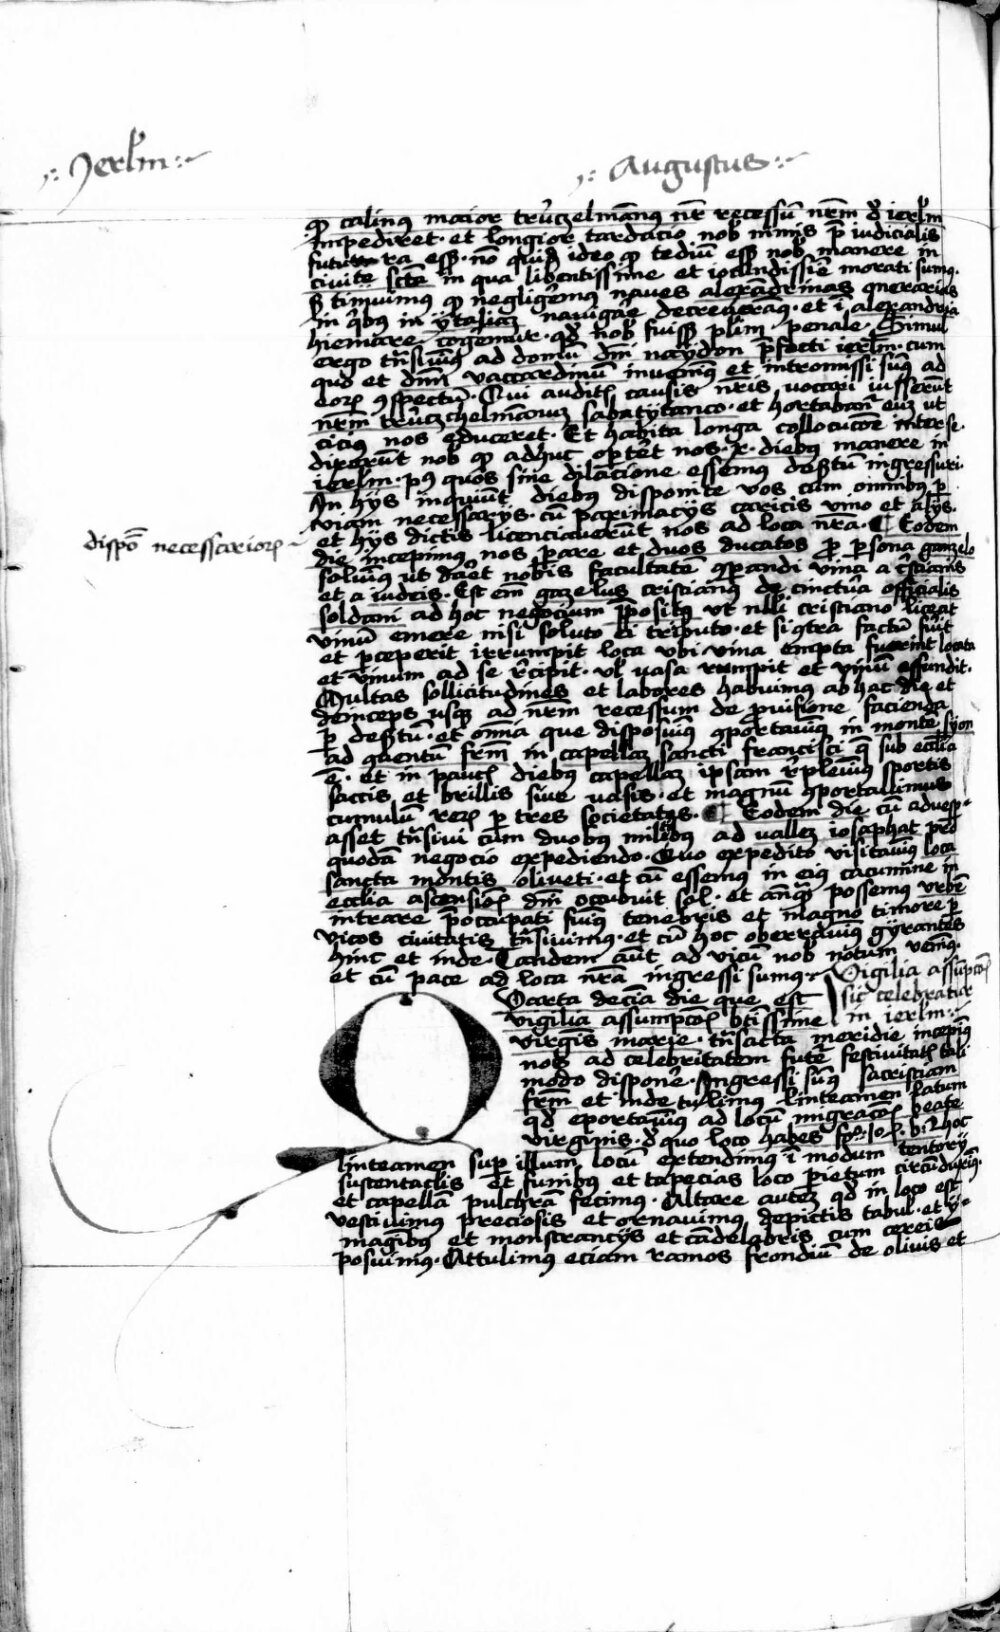 .:. Jerlm .:.
.:. Augustus .:.
ꝙ calinꝰ maior trutzelmānꝰ nr̄ recessū nr̄m d̄ ierlm
impediret · et longior tardacio nob nimis p̄iudicialis
futura ra eēt · nō quid ideo ꝙ tediū eēt nob manere in
civite scte in qua libentissime et iocundissīe morati sumꝰ ·
ꝫ timuimꝰ ꝙ negligerēmꝰ naves alexādrinas onerarias
in q̄bus in ytaliaꝫ navigāe decreveramꝰ · et ī alexandria
hiemare cogemur · qd̄ nob fuissꝫ plm̄ penale · Simul
ergo tn̄sivimꝰ ad domū dn̄i naydon p̄fecti ierlm · cum
quo et dn̄m vaccardinū invenimꝰ et intromissi sumꝰ ad
eorꝫ ꝯspectū · Qui auditꝭ causis nr̄is vocari iusserūt
nr̄m trutzchelmānuꝫ sabatytanco · et hortabanꝉ eūꝫ ut
cicius nos educeret · Et habita longa collocucōe inter se
dixerūt nob ꝙ adhuc oportet nos · x · diebus manere in
ierlm · pꝰ quos sine dilacione essemus desertū ingressuri ·
In hys inquiūt diebus disponite vos cum omnibꝰ p̱
viam necessarys · cū paximacys caricis vino et alys ·
et hys dictis licenciaverūt nos ad loca nra · ¶ Eodem
dispo necesscariorꝫ
die incepimꝰ nos p̱are et duos ducatos p̱ persona gazelo
solvimꝰ ut daret nobis facultatē ꝯparandi vina a cristianis
et a iudeis · Est eni gazelus cristianꝰ de cinctura officialis
soldani ad hoc negocium p̄positꝰ ut nlli cristiano liceat
vinū emere nisi soluto ei tributo · et si ꝯtra factū fuit
et p̱ceperit irrumpit loca ubi vina empta fuerint locata
et vinum ad se recipit · vl vasa rumpit et vinū effundit ·
Multas sollicitudines et labores habuimus ab hac die et
deinceps usqꝫ ad nr̄m recessum de p̱visione facienda
p̱ desertū · et omnia que disposuimꝰ ꝯportavimꝰ in monte syon
ad ꝯventum frm̄ in capellaꝫ sancti francisci q̄ sub ecclia
ē · et in paucꝭ diebꝰ capellaꝫ ipsam replevimꝰ sportis
saccis et brillis sive vasis · et magnū ꝯportavimus
cumulum rerꝫ p̱ tres societates · ¶ Eodem die cū advesp-
asset tn̄sivi cum duobus militibꝰ ad valleꝫ iosaphat pro
quodā negocio expediendo · Quo expedito visitavimꝰ loca
sancta montis oliveti · et cū essemus in eiꝰ cacumine in
ecclia ascensionꝭ dn̄i occubuit sol · et anq̄ possemus urbē
intrare p̄occupati fuimꝰ tenebris et magno timore p̱
vicos civitatis tn̄sivimꝰ · et cū hoc oberravimꝰ gyrantes
hinc et inde · Tandem aūt ad vicū nob notum venimꝰ ·
et cū pace ad loca nr̄a ingressi sumus · Vigilia assūpcōꝭ
sic celebratur
in ierlm .:.
Quarta decīa die que est
vigilia assumpcōꝭ btissime
virginis marie · tn̄sacta meridie incepimꝰ
nos ad celebritatem future festivitatꝭ tali
modo disponere · Ingressi sumꝰ sacristiam
frm̄ et inde tulimus linteamen latum
qd̄ eportavimꝰ ad locū migracōꝭ beate
virginis · d̄ quo loco habes · hoc
linteamen sup illum locū extendimꝰ ī modum tentory
sustentaclis et funibus et tapecias loco parietum circūduximꝰ ·
et capellā pulchrā fecimꝰ · Altare auteꝫ qd̄ in loco est
vestivimus preciosis et ornavimus depictis tabulꝭ · et y-
magībus et monstrancys et cādelabris cum cereis
posuimꝰ · Attulimus eciam ramos frondiū de olivis et